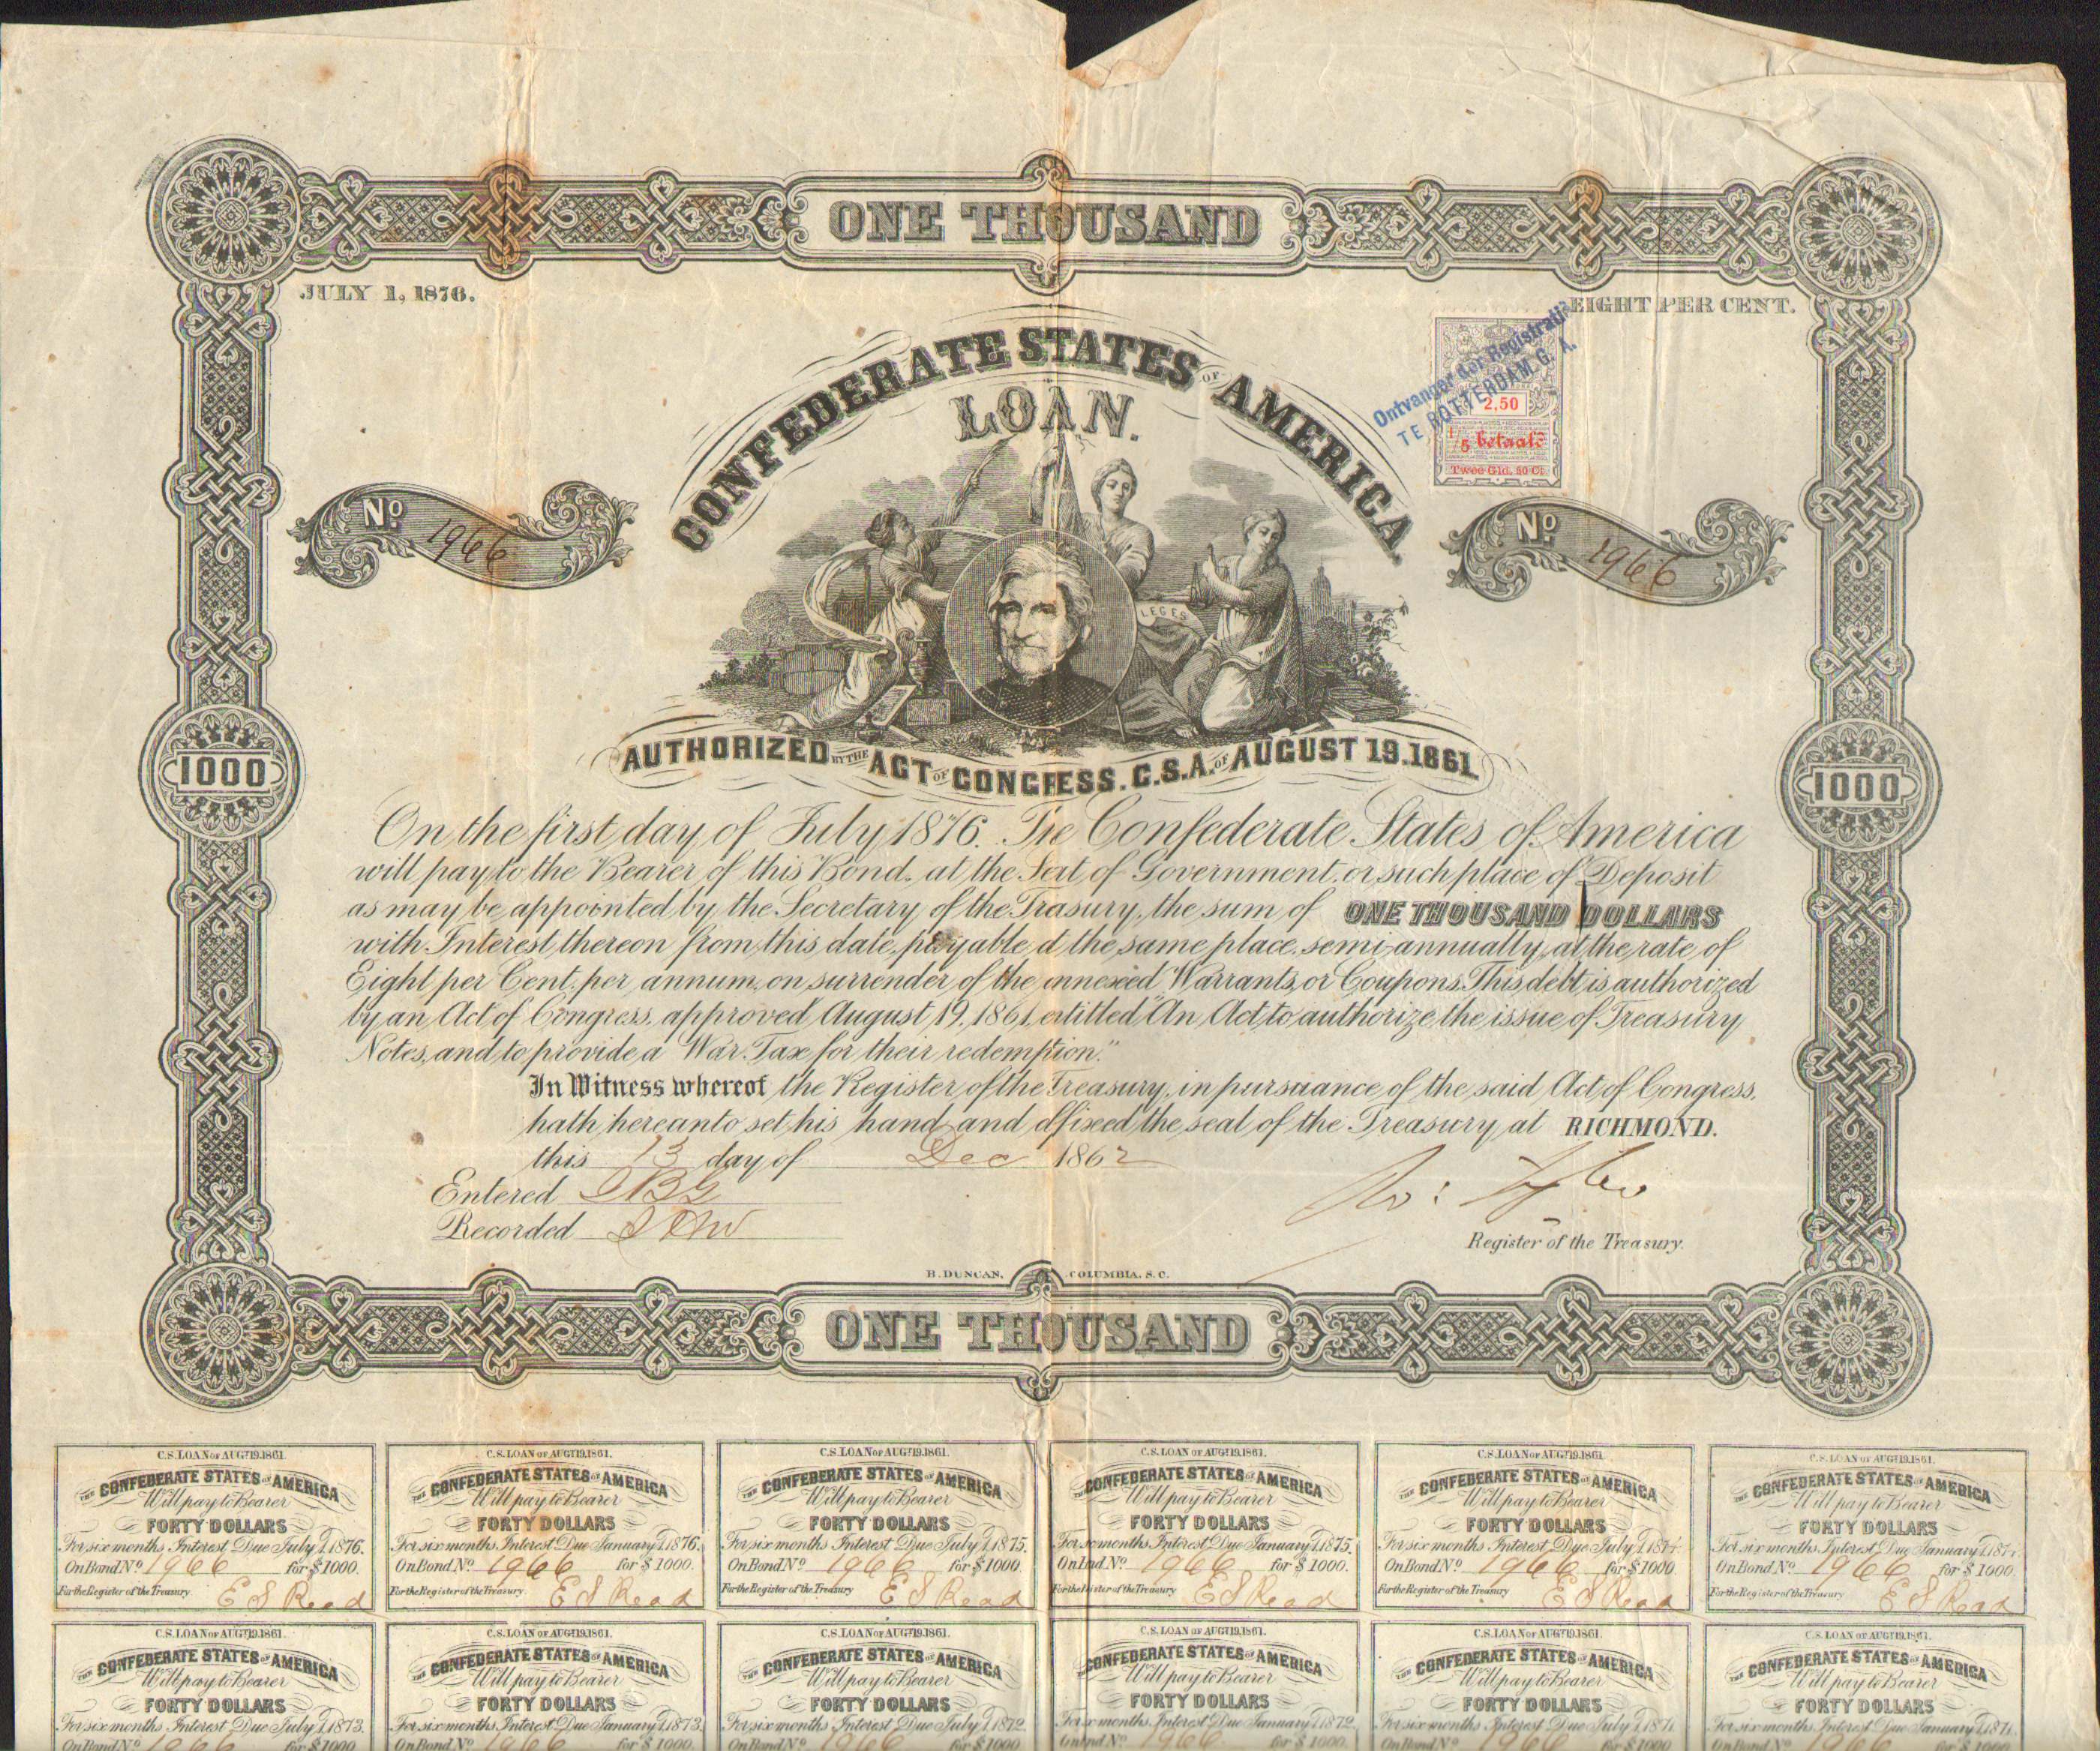 ONE THOUSAND
JULY 1, 1876.
EIGHT PER CENT.
CONFEDERATE STATES OF AMERICA
LOAN.
Ontvanger der Registratie
TE ROTTERDAM. G. A.
2,50
betaald
Twee Gld. 50 Ct.
No 1966
No 1966
LEGES
AUTHORIZED BY THE ACT OF CONGRESS. C.S.A. OF AUGUST 19.1861
1000
1000
On the first day of July 1876. The Confederate States of America
will pay to the Bearer of this Bond. at the Seat of Government. or such place of Deposit
as may be appointed by the Secretary of the Treasury, the sum of ONE THOUSAND DOLLARS
with Interest thereon from this date, payable at the same place. semi-annually, at the rate of
Eight per Cent. per annum, on surrender of the annexed Warrants, or Coupons. This debt is authorized
by an Act of Congress, approved August 19. 1861, entitled "An Act, to authorize the issue of Treasury
Notes, and to provide a War Tax for their redemption."
In Witness whereof the Register of the Treasury, in pursuance of the said Act of Congress,
hath hereunto set his hand and affixed the seal of the Treasury at RICHMOND.
this 13 day of Dec 1862
Entered
Recorded
Register of the Treasury.
B. DUNCAN, COLUMBIA, S. C.
ONE THOUSAND
C.S. LOAN OF AUGT 19.1861.
THE CONFEDERATE STATES OF AMERICA
Will pay to Bearer
FORTY DOLLARS
For six months Interest Due July 1, 1876.
On Bond No 1966 for $1000.
For the Register of the Treasury E S Read
C.S. LOAN OF AUGT 19.1861.
THE CONFEDERATE STATES OF AMERICA
Will pay to Bearer
FORTY DOLLARS
For six months Interest Due January 1, 1876.
On Bond No 1966 for $1000.
For the Register of the Treasury E S Read
C.S. LOAN OF AUGT 19.1861.
THE CONFEDERATE STATES OF AMERICA
Will pay to Bearer
FORTY DOLLARS
For six months Interest Due July 1, 1875.
On Bond No 1966 for $1000
For the Register of the Treasury E S Read
C.S. LOAN OF AUGT 19.1861.
CONFEDERATE STATES OF AMERICA
Will pay to Bearer
FORTY DOLLARS
For six months Interest Due January 1, 1875.
On Bond No 1966 for $1000.
For the Register of the Treasury E S Read
C.S. LOAN OF AUGT 19.1861.
THE CONFEDERATE STATES OF AMERICA
Will pay to Bearer
FORTY DOLLARS
For six months Interest Due July 1, 1874.
On Bond No 1966 for $1000
For the Register of the Treasury E S Read
C.S. LOAN OF AUGT 19.1861.
THE CONFEDERATE STATES OF AMERICA
Will pay to Bearer
FORTY DOLLARS
For six months Interest Due January 1, 1874.
On Bond No 1966 for $1000.
For the Register of the Treasury E S Read
C.S. LOAN OF AUGT 19.1861.
THE CONFEDERATE STATES OF AMERICA
Will pay to Bearer
FORTY DOLLARS
For six months Interest Due July 1, 1873.
On Bond No 1966 for $1000
C.S. LOAN OF AUGT 19.1861.
THE CONFEDERATE STATES OF AMERICA
Will pay to Bearer
FORTY DOLLARS
For six months Interest Due January 1, 1873.
On Bond No 1966 for $1000.
C.S. LOAN OF AUGT 19.1861.
THE CONFEDERATE STATES OF AMERICA
Will pay to Bearer
FORTY DOLLARS
For six months Interest Due July 1, 1872
On Bond No 1966 for $1000
C.S. LOAN OF AUGT 19.1861.
CONFEDERATE STATES OF AMERICA
Will pay to Bearer
FORTY DOLLARS
For six months Interest Due January 1, 1872.
On Bond No 1966 for $1000.
C.S. LOAN OF AUGT 19.1861.
THE CONFEDERATE STATES OF AMERICA
Will pay to Bearer
FORTY DOLLARS
For six months Interest Due July 1, 1871
On Bond No 1966 for $1000
C.S. LOAN OF AUGT 19.1861.
THE CONFEDERATE STATES OF AMERICA
Will pay to Bearer
FORTY DOLLARS
For six months Interest Due January 1, 1871.
On Bond No 1966 for $1000